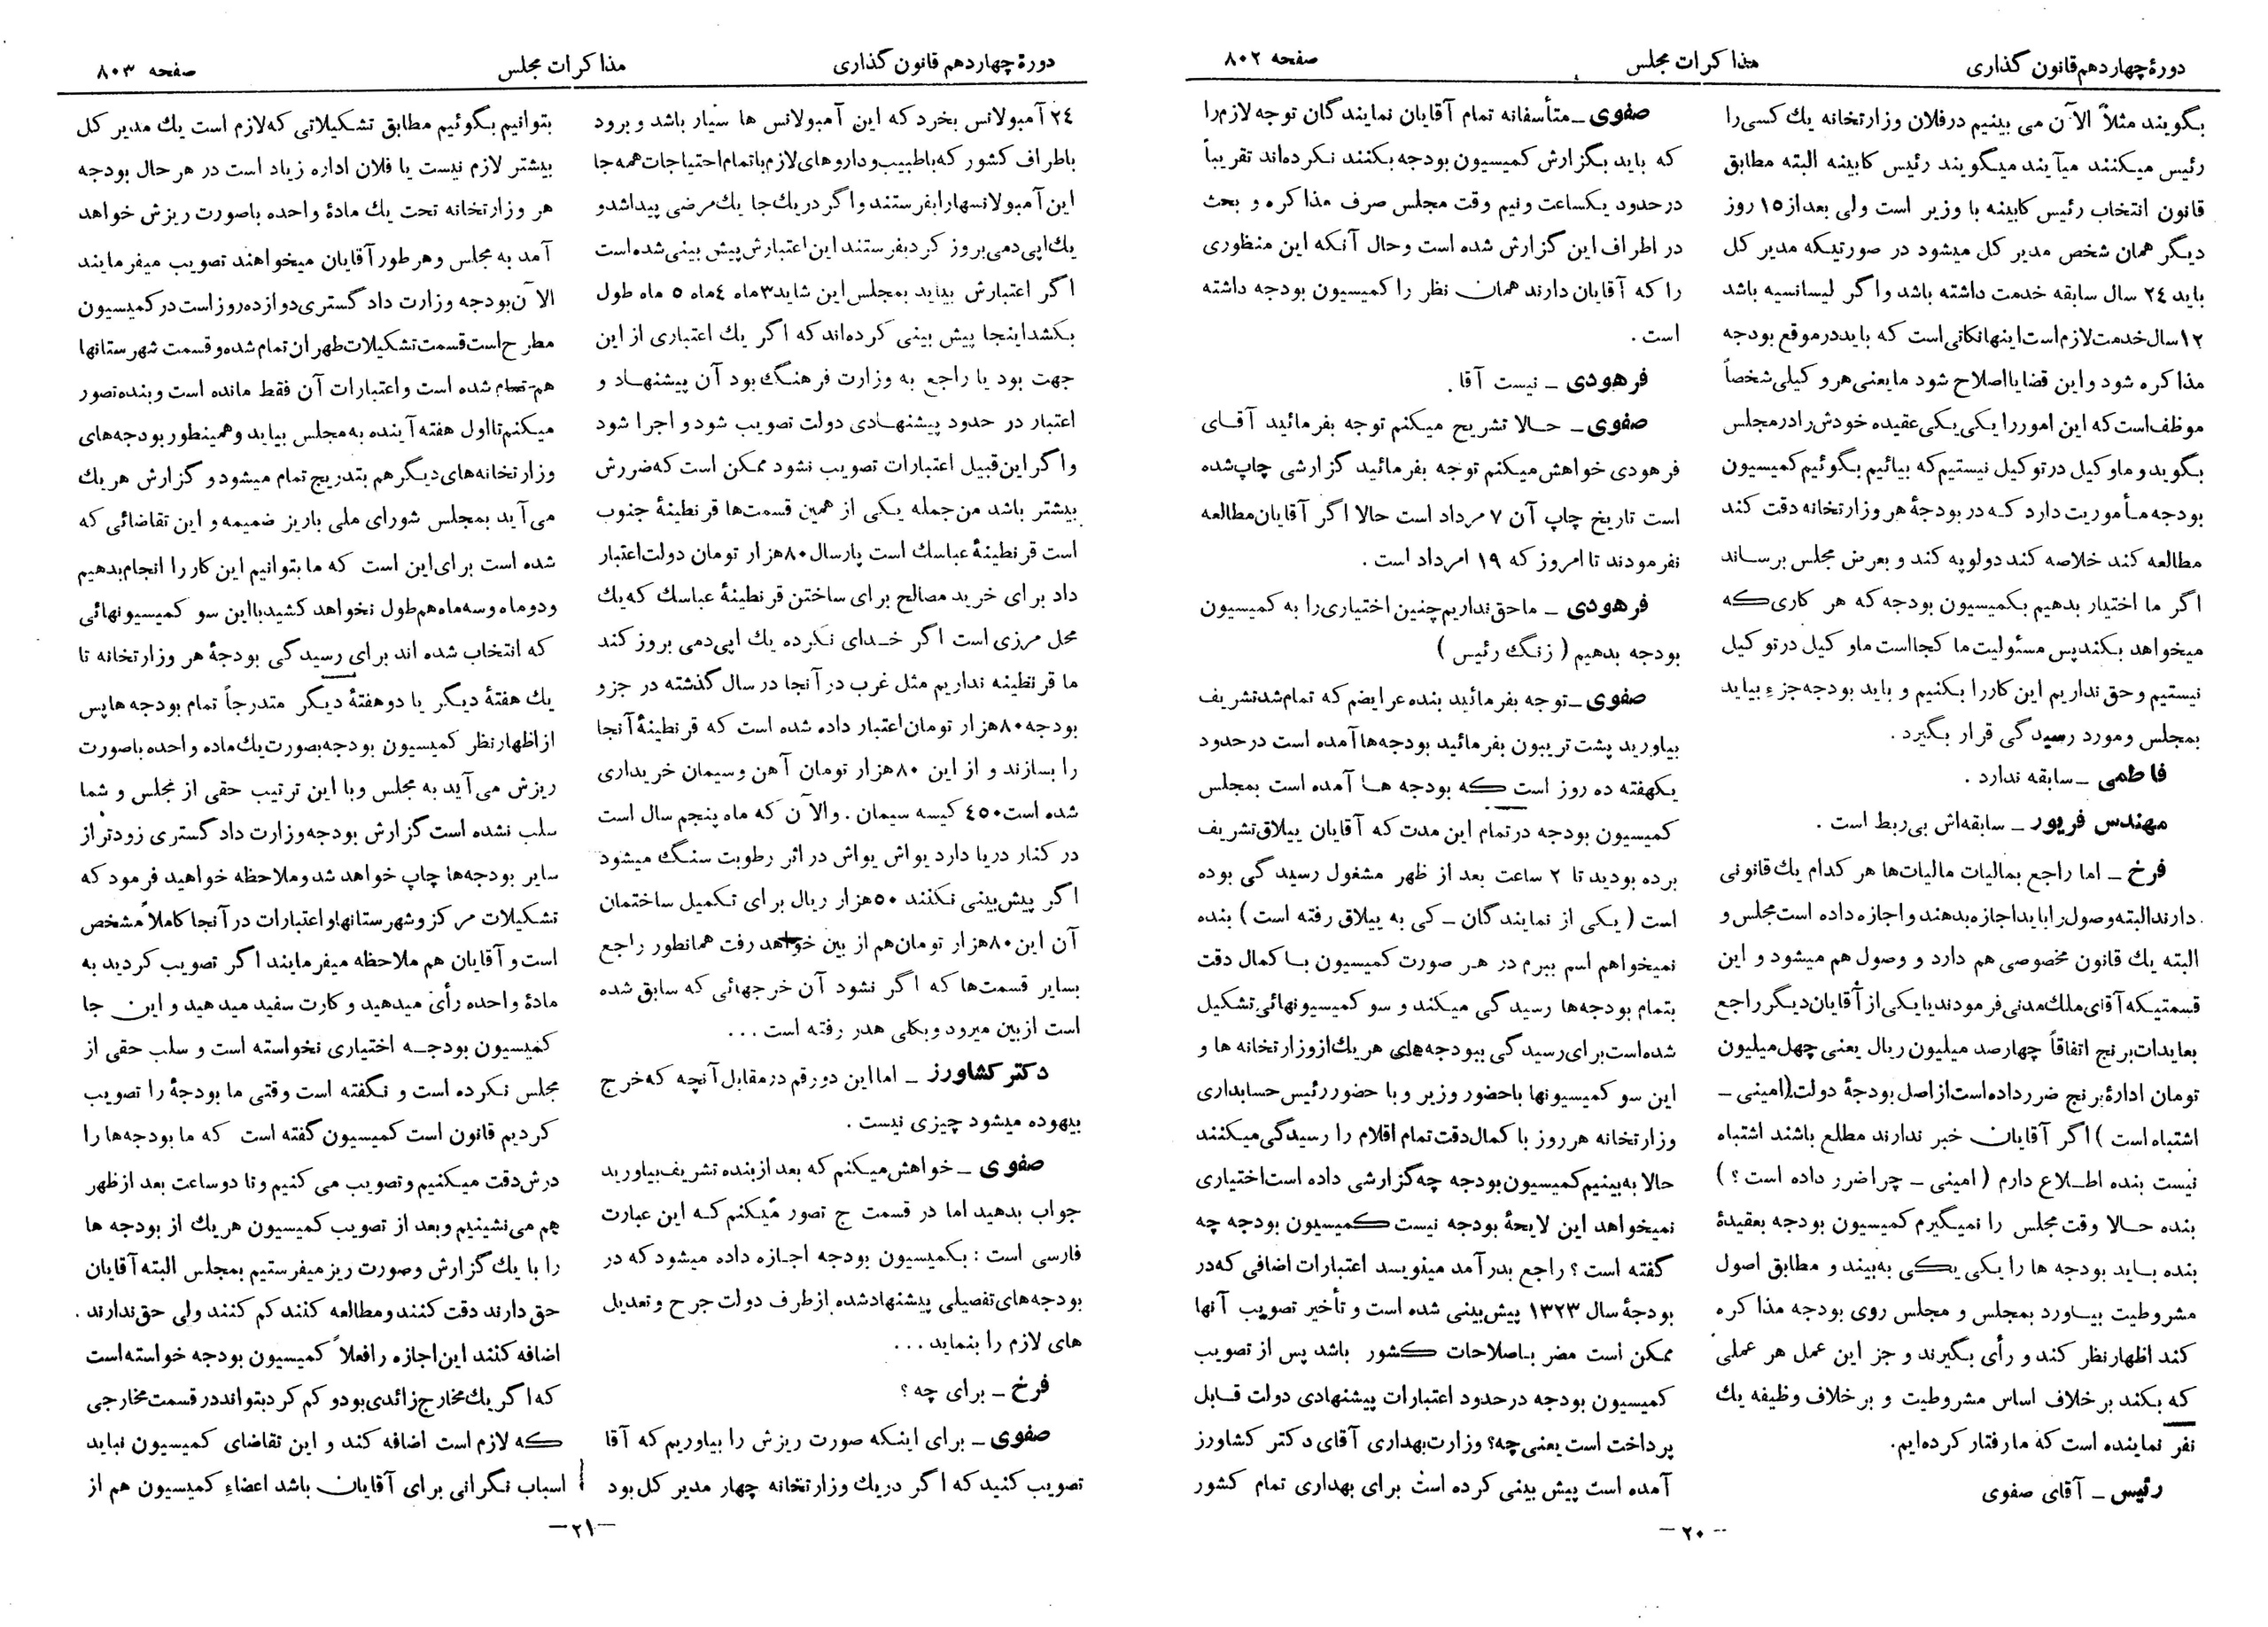 دورهٔ چهاردهم قانون گذاری
مذاکرات مجلس
صفحه ۸۰۲
بگویند مثلاً الآن می بینیم در فلان وزارتخانه یك کسی را
رئیس میکنند میآیند میگویند رئیس کابینه البته مطابق
قانون انتخاب رئیس کابینه با وزیر است ولی بعد از ۱۵ روز
دیگر همان شخص مدیر کل میشود در صورتیکه مدیر کل
باید ۲٤ سال سابقه خدمت داشته باشد واگر لیسانسیه باشد
۱۲ سال خدمت لازم است اینها نکاتی است که باید در موقع بودجه
مذاکره شود و این قضایا اصلاح شود ما یعنی هر وکیلی شخصاً
موظف است که این امور را یکی یکی عقیده خودش را در مجلس
بگوید و ما وکیل در توکیل نیستیم که بیائیم بگوئیم کمیسیون
بودجه مأموریت دارد که در بودجهٔ هر وزارتخانه دقت کند
مطالعه کند خلاصه کند دولوپه کند و بعرض مجلس برساند
اگر ما اختیار بدهیم بکمیسیون بودجه که هر کاری که
میخواهد بکند پس مسئولیت ما کجااست ماو کیل در توکیل
نیستیم و حق نداریم این کار را بکنیم و باید بودجه جزء بیاید
بمجلس و مورد رسیدگی قرار بگیرد .
فاطمی ـ سابقه ندارد .
مهندس فریور ـ سابقه‌اش بی‌ربط است .
فرخ ـ اما راجع بمالیات مالیات‌ها هر کدام یك قانونی
دارند البته وصول را باید اجازه بدهند و اجازه داده است مجلس و
البته یك قانون مخصوصی هم دارد و وصول هم میشود و این
قسمتیکه آقای ملك مدنی فرمودند یا یکی از آقایان دیگر راجع
بعایدات برنج اتفاقاً چهارصد میلیون ریال یعنی چهل میلیون
تومان ادارهٔ برنج ضرر داده است از اصل بودجهٔ دولت (امینی ـ
اشتباه است ) اگر آقایان خبر ندارند مطلع باشند اشتباه
نیست بنده اطلاع دارم ( امینی ـ چرا ضرر داده است ؟ )
بنده حالا وقت مجلس را نمیگیرم کمیسیون بودجه بعقیدهٔ
بنده باید بودجه ها را یکی یکی به‌بیند و مطابق اصول
مشروطیت بیاورد بمجلس و مجلس روی بودجه مذاکره
کند اظهار نظر کند و رأی بگیرند و جز این عمل هر عملی
که بکند بر خلاف اساس مشروطیت و بر خلاف وظیفه یك
نفر نماینده است که ما رفتار کرده‌ایم.
رئیس ـ آقای صفوی
صفوی ـ متأسفانه تمام آقایان نمایندگان توجه لازم را
که باید بگزارش کمیسیون بودجه بکنند نکرده‌اند تقریباً
در حدود یکساعت ونیم وقت مجلس صرف مذاکره و بحث
در اطراف این گزارش شده است وحال آنکه این منظوری
را که آقایان دارند همان نظر را کمیسیون بودجه داشته
است .
فرهودی ـ نیست آقا.
صفوی ـ حالا تشریح میکنم توجه بفرمائید آقای
فرهودی خواهش میکنم توجه بفرمائید گزارشی چاپ شده
است تاریخ چاپ آن ۷ مرداد است حالا اگر آقایان مطالعه
نفرمودند تا امروز که ۱۹ امرداد است .
فرهودی ـ ما حق نداریم چنین اختیاری را به کمیسیون
بودجه بدهیم ( زنگ رئیس )
صفوی ـ توجه بفرمائید بنده عرایضم که تمام شد تشریف
بیاورید پشت تریبون بفرمائید بودجه‌ها آمده است در حدود
یکهفته ده روز است که بودجه ها آمده است بمجلس
کمیسیون بودجه در تمام این مدت که آقایان ییلاق تشریف
برده بودید تا ۲ ساعت بعد از ظهر مشغول رسیدگی بوده
است ( یکی از نمایندگان ـ کی به ییلاق رفته است ) بنده
نمیخواهم اسم ببرم در هر صورت کمیسیون با کمال دقت
بتمام بودجه‌ها رسیدگی میکند و سو کمیسیونهائی تشکیل
شده است برای رسیدگی ببودجه‌های هر یك از وزارتخانه ها و
این سو کمیسیونها با حضور وزیر و با حضور رئیس حسابداری
وزارتخانه هر روز با کمال دقت تمام اقلام را رسیدگی میکنند
حالا به بینیم کمیسیون بودجه چه گزارشی داده است اختیاری
نمیخواهد این لایحهٔ بودجه نیست کمیسیون بودجه چه
گفته است ؟ راجع بدرآمد مینویسد اعتبارات اضافی که در
بودجهٔ سال ۱۳۲۳ پیش‌بینی شده است و تأخیر تصویب آنها
ممکن است مضر باصلاحات کشور باشد پس از تصویب
کمیسیون بودجه در حدود اعتبارات پیشنهادی دولت قابل
پرداخت است یعنی چه؟ وزارت بهداری آقای دکتر کشاورز
آمده است پیش بینی کرده است برای بهداری تمام کشور
ـ۲۰ـ
دورهٔ چهاردهم قانون گذاری
مذاکرات مجلس
صفحه ۸۰۳
۲٤ آمبولانس بخرد که این آمبولانس ها سیار باشد و برود
باطراف کشور که با طبیب و داروهای لازم با تمام احتیاجات همه جا
این آمبولانسها را بفرستند و اگر در یك جا یك مرضی پیدا شد و
یك اپی دمی بروز کرد بفرستند این اعتبارش پیش بینی شده است
اگر اعتبارش بیاید بمجلس این شاید ۳ماه ٤ماه ۵ ماه طول
بکشد اینجا پیش بینی کرده‌اند که اگر یك اعتباری از این
جهت بود یا راجع به وزارت فرهنگ بود آن پیشنهاد و
اعتبار در حدود پیشنهادی دولت تصویب شود و اجرا شود
واگر این قبیل اعتبارات تصویب نشود ممکن است که ضررش
بیشتر باشد من جمله یکی از همین قسمت‌ها قرنطینهٔ جنوب
است قرنطینهٔ عباسك است پارسال ۸۰هزار تومان دولت اعتبار
داد برای خرید مصالح برای ساختن قرنطینهٔ عباسك که یك
محل مرزی است اگر خدای نکرده یك اپی دمی بروز کند
ما قرنطینه نداریم مثل غرب در آنجا در سال گذشته در جزو
بودجه ۸۰هزار تومان اعتبار داده شده است که قرنطینهٔ آنجا
را بسازند و از این ۸۰هزار تومان آهن وسیمان خریداری
شده است ٤۵۰ کیسه سیمان . والآن که ماه پنجم سال است
در کنار دریا دارد یواش یواش در اثر رطوبت سنگ میشود
اگر پیش‌بینی نکنند ۵۰هزار ریال برای تکمیل ساختمان
آن این ۸۰هزار تومان هم از بین خواهد رفت همانطور راجع
بسایر قسمت‌ها که اگر نشود آن خرجهائی که سابق شده
است از بین میرود و بکلی هدر رفته است ...
دکتر کشاورز ـ اما این دو رقم در مقابل آنچه که خرج
بیهوده میشود چیزی نیست .
صفوی ـ خواهش میکنم که بعد از بنده تشریف بیاورید
جواب بدهید اما در قسمت ج تصور میکنم که این عبارت
فارسی است : بکمیسیون بودجه اجازه داده میشود که در
بودجه‌های تفصیلی پیشنهاد شده از طرف دولت جرح و تعدیل
های لازم را بنماید ...
فرخ ـ برای چه ؟
صفوی ـ برای اینکه صورت ریزش را بیاوریم که آقا
تصویب کنید که اگر در یك وزارتخانه چهار مدیر کل بود
بتوانیم بگوئیم مطابق تشکیلاتی که لازم است یك مدیر کل
بیشتر لازم نیست یا فلان اداره زیاد است در هر حال بودجه
هر وزارتخانه تحت یك مادهٔ واحده باصورت ریزش خواهد
آمد به مجلس و هر طور آقایان میخواهند تصویب میفرمایند
الآن بودجه وزارت دادگستری دوازده روز است در کمیسیون
مطرح است قسمت تشکیلات طهران تمام شده و قسمت شهرستانها
هم تمام شده است و اعتبارات آن فقط مانده است و بنده تصور
میکنم تا اول هفته آینده به مجلس بیاید و همینطور بودجه‌های
وزارتخانه‌های دیگر هم بتدریج تمام میشود و گزارش هر یك
می‌آید بمجلس شورای ملی باریز ضمیمه و این تقاضائی که
شده است برای این است که ما بتوانیم این کار را انجام بدهیم
و دو ماه و سه ماه هم طول نخواهد کشید با این سو کمیسیونهائی
که انتخاب شده اند برای رسیدگی بودجهٔ هر وزارتخانه تا
یك هفتهٔ دیگر یا دو هفتهٔ دیگر متدرجاً تمام بودجه ها پس
از اظهار نظر کمیسیون بودجه بصورت یك ماده واحده باصورت
ریزش می‌آید به مجلس وبا این ترتیب حقی از مجلس و شما
سلب نشده است گزارش بودجه وزارت دادگستری زودتر از
سایر بودجه‌ها چاپ خواهد شد و ملاحظه خواهید فرمود که
تشکیلات مرکز و شهرستانها و اعتبارات در آنجا کاملاً مشخص
است و آقایان هم ملاحظه میفرمایند اگر تصویب کردید به
مادهٔ واحده رأی میدهید و کارت سفید میدهید و این جا
کمیسیون بودجه اختیاری نخواسته است و سلب حقی از
مجلس نکرده است و نگفته است وقتی ما بودجهٔ را تصویب
کردیم قانون است کمیسیون گفته است که ما بودجه‌ها را
درش دقت میکنیم و تصویب می کنیم و تا دو ساعت بعد از ظهر
هم می‌نشینیم و بعد از تصویب کمیسیون هر یك از بودجه ها
را با یك گزارش و صورت ریز میفرستیم بمجلس البته آقایان
حق دارند دقت کنند و مطالعه کنند کم کنند ولی حق ندارند .
اضافه کنند این اجازه را فعلاً کمیسیون بودجه خواسته است
که اگر یك مخارج زائدی بود و کم کرد بتواند در قسمت مخارجی
که لازم است اضافه کند و این تقاضای کمیسیون نباید
اسباب نگرانی برای آقایان باشد اعضاء کمیسیون هم از
ـ۲۱ـ